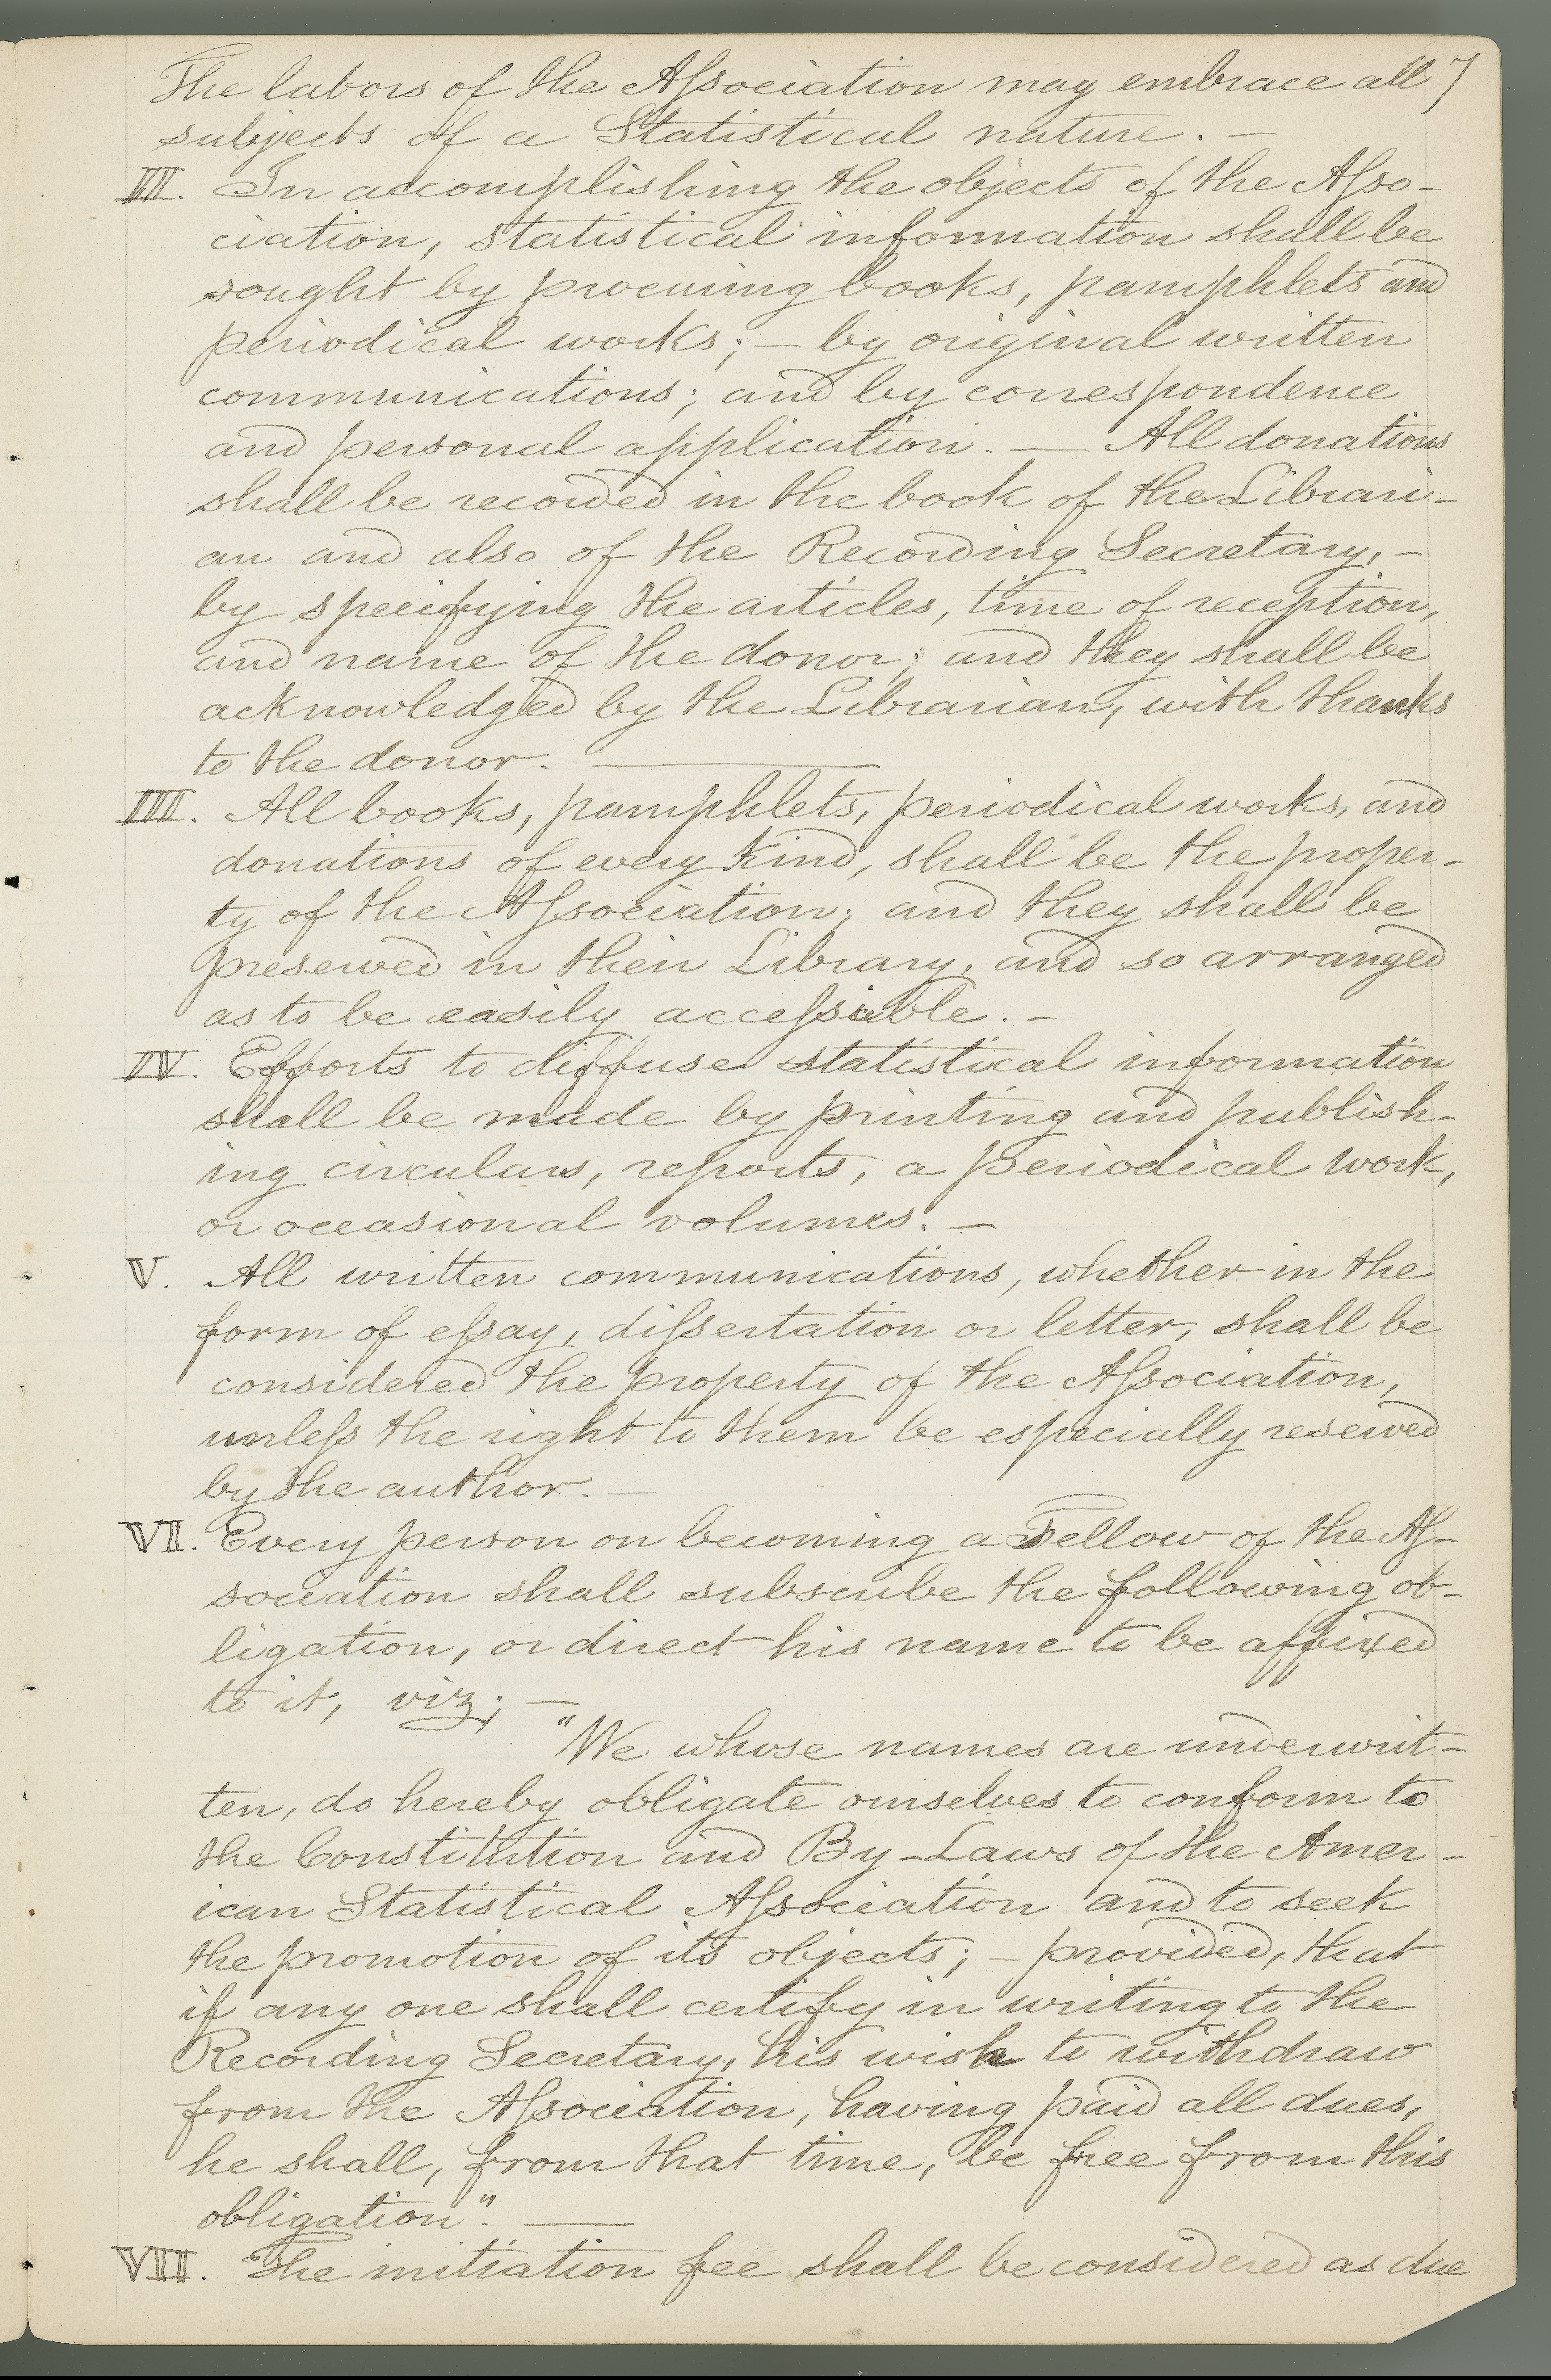 The labors of the Aſsociation may embrace all 7
subjects of a Statistical nature. —
II. In accomplishing the objects of the Aſso-
ciation, statistical information shall be
sought by procuring books, pamphlets and
periodical works; — by original written
communications; and by correspondence
and personal application. — All donations
shall be recorded in the book of the Librari-
an and also of the Recording Secretary, —
by specifying the articles, time of reception,
and name of the donor; and they shall be
acknowledged by the Librarian, with thanks
to the donor. —
III. All books, pamphlets, periodical works, and
donations of every kind, shall be the proper-
ty of the Aſsociation; and they shall be
preserved in their Library, and so arranged
as to be easily acceſsible. —
IV. Efforts to diffuse statistical information
shall be made by printing and publish-
ing circulars, reports, a periodical work,
or occasional volumes. —
V. All written communications, whether in the
form of eſsay, diſsertation or letter, shall be
considered the property of the Aſsociation,
unleſs the right to them be especially reserved
by the author. —
VI. Every person on becoming a Fellow of the Aſ-
sociation shall subscribe the following ob-
ligation, or direct his name to be affixed
to it, viz; —
"We whose names are underwrit-
ten, do hereby obligate ourselves to conform to
the Constitution and By-Laws of the Amer-
ican Statistical Aſsociation and to seek
the promotion of its objects; — provided, that
if any one shall certify in writing to the
Recording Secretary, his wish to withdraw
from the Aſsociation, having paid all dues,
he shall, from that time, be free from this
obligation". —
VII. The initiation fee shall be considered as due